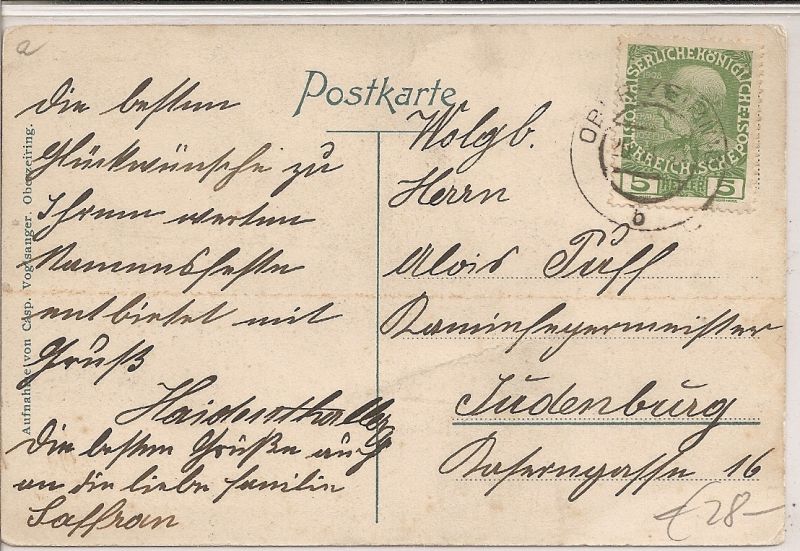 a
Postkarte
Die besten
Glückwünsche zu
Ihrem werten
Namensfeste
entbietet mit
Gruß
Haidenthaller
Die besten Grüße auch
an die liebe Familie
Saffran
Aufnahme von Casp. Voglsanger. Oberzeiring.
Wolgb.
Herrn
Alois Puff
Kaminfegermeister
Judenburg
Kaserngasse 16
€28-
KAISERLICHEKÖNIGLICHE
ÖSTERREICHISCHE POST
1908
5 5
OBERZEIRING
b